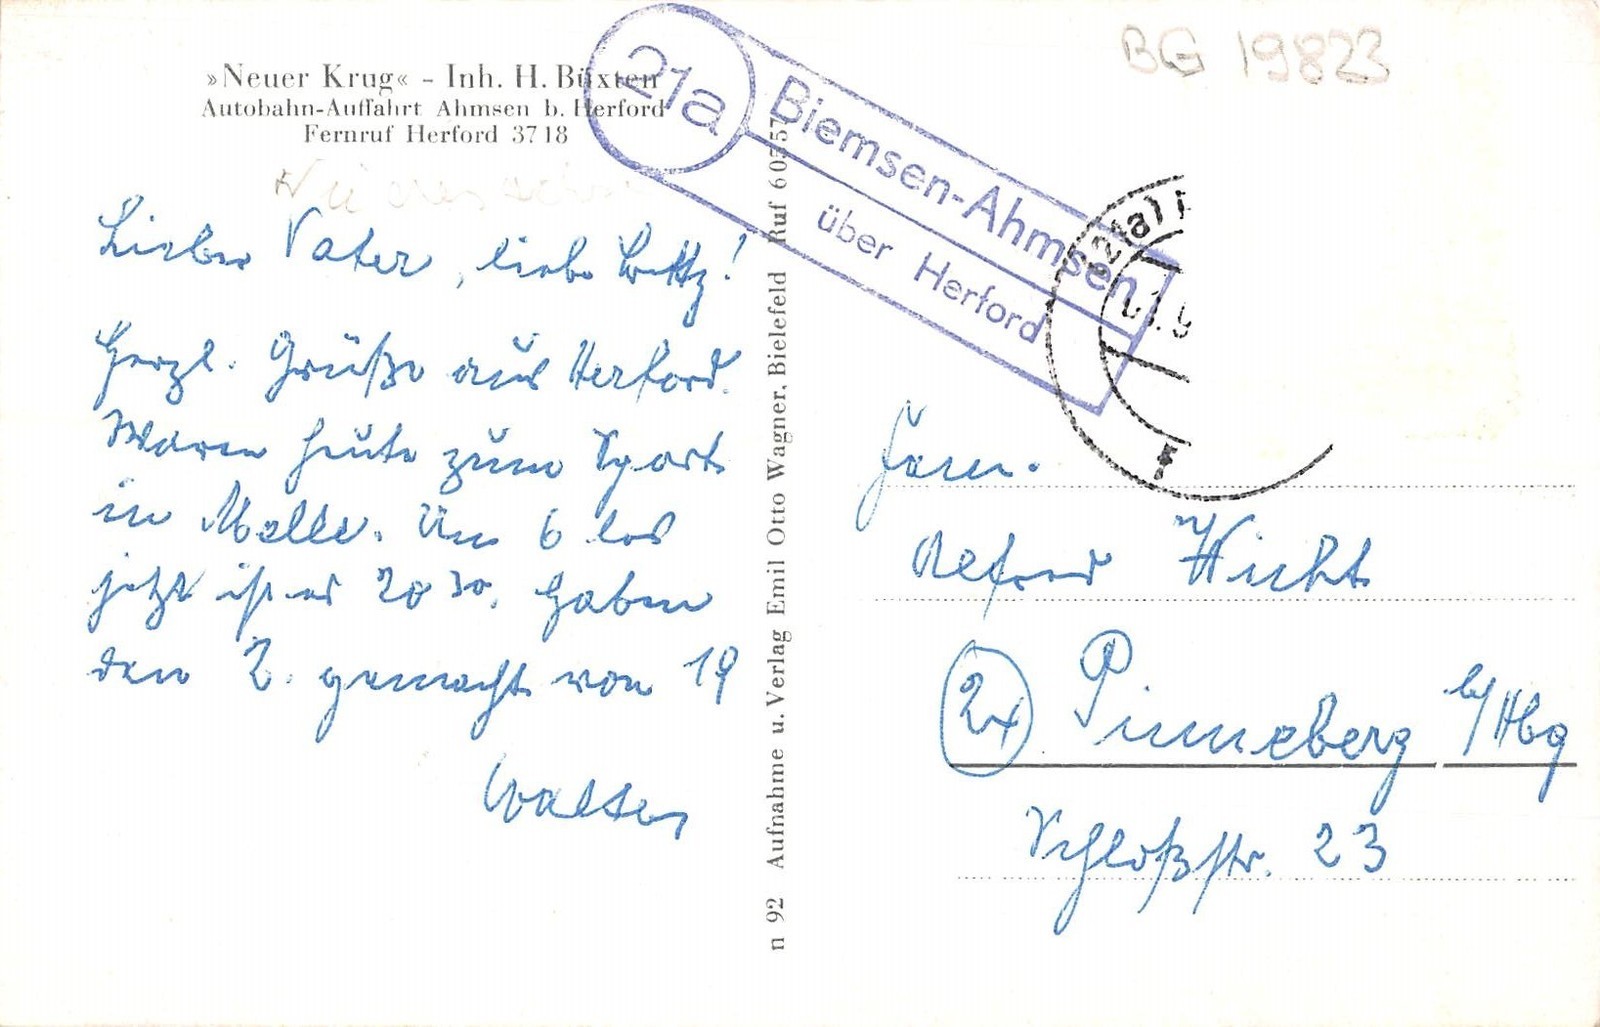 »Neuer Krug« - Inh. H. Büxten
Autobahn-Auffahrt Ahmsen b. Herford
Fernruf Herford 3718
Lieber Vater, liebe
Herzl. Grüße aus Herford.
Waren heute zum Sport
in Melle. Um 6 los
jetzt ist es 20 30. Haben
den 2. gemacht von 19
Walter
n 92 Aufnahme u. Verlag Emil Otto Wagner, Bielefeld Ruf 60557
21a
Biemsen-Ahmsen
über Herford
(21a)
BG 19823
Alfred Wicht
Pinneberg b/Hbg
Schloßstr. 23